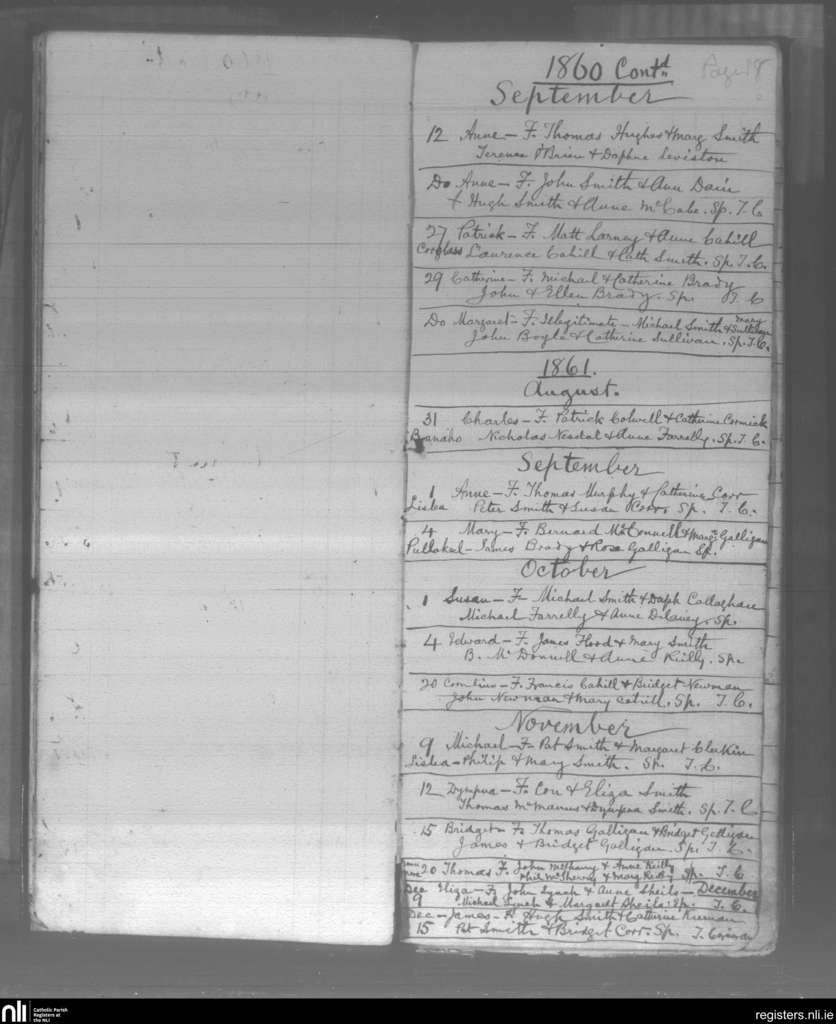 1860 Contd
Page 18
September
12 Anne - F. Thomas Hughes & Mary Smith
Terence O'Brien & Daphne Leviston
Do Anne - F. John Smith & Ann Dain
+ Hugh Smith & Anne McCabe. Sp. T. C
27 Patrick - F. Matt Larney & Anne Cahill
Corglass Laurence Cahill & Cath Smith. Sp. T. C.
29 Catherine - F. Michael & Catherine Brady
John & Ellen Brady. Sp. T. C
Do Margaret - F. Illegitimate - Michael Smith & Mary Sullivan
John Boyle & Catherine Sullivan. Sp. T. C.
1861.
August.
31 Charles - F. Patrick Colwell & Catherine Cormick
Nicholas & Anne Farrelly. Sp. T. C.
September
1 Anne - F. Thomas Murphy & Catherine Corr
Lislea Peter Smith & Susan Corr Sp. T. C.
4 Mary - F. Bernard McConnell & Margt Galligan
James Brady & Rose Galligan Sp.
October
1 Susan - F. Michael Smith & Daph Callaghan
Michael Farrelly & Anne Delaney. Sp.
4 Edward - F. James Flood & Mary Smith
B. McDonnell & Annie Reilly. Sp.
20 Cornelius - F. Francis Cahill & Bridget Newman
John Newman & Mary Cahill. Sp. T. C.
November
9 Michael - F. Pat Smith & Margaret Clarkin
Lislea - Philip & Mary Smith. Sp. T. C.
12 Dympna - F. Con & Eliza Smith
Thomas McManus & Dympna Smith. Sp. T. C
15 Bridget - F. Thomas Galligan & Bridget Galligan
James & Bridget Galligan. Sp. T. C.
20 Thomas F. John & Anne Reilly
Phil & Mary Reilly Sp. T. C
Dec Eliza - F. John Lynch & Anne Sheils - December
9 Michael Lynch & Margaret Sheils. Sp. T. C.
Dec - James - F. Hugh Smith & Catherine Kiernan
15 Pat Smith & Bridget Corr. Sp. T.
nli
Catholic Parish
Registers at
the NLI
registers.nli.ie